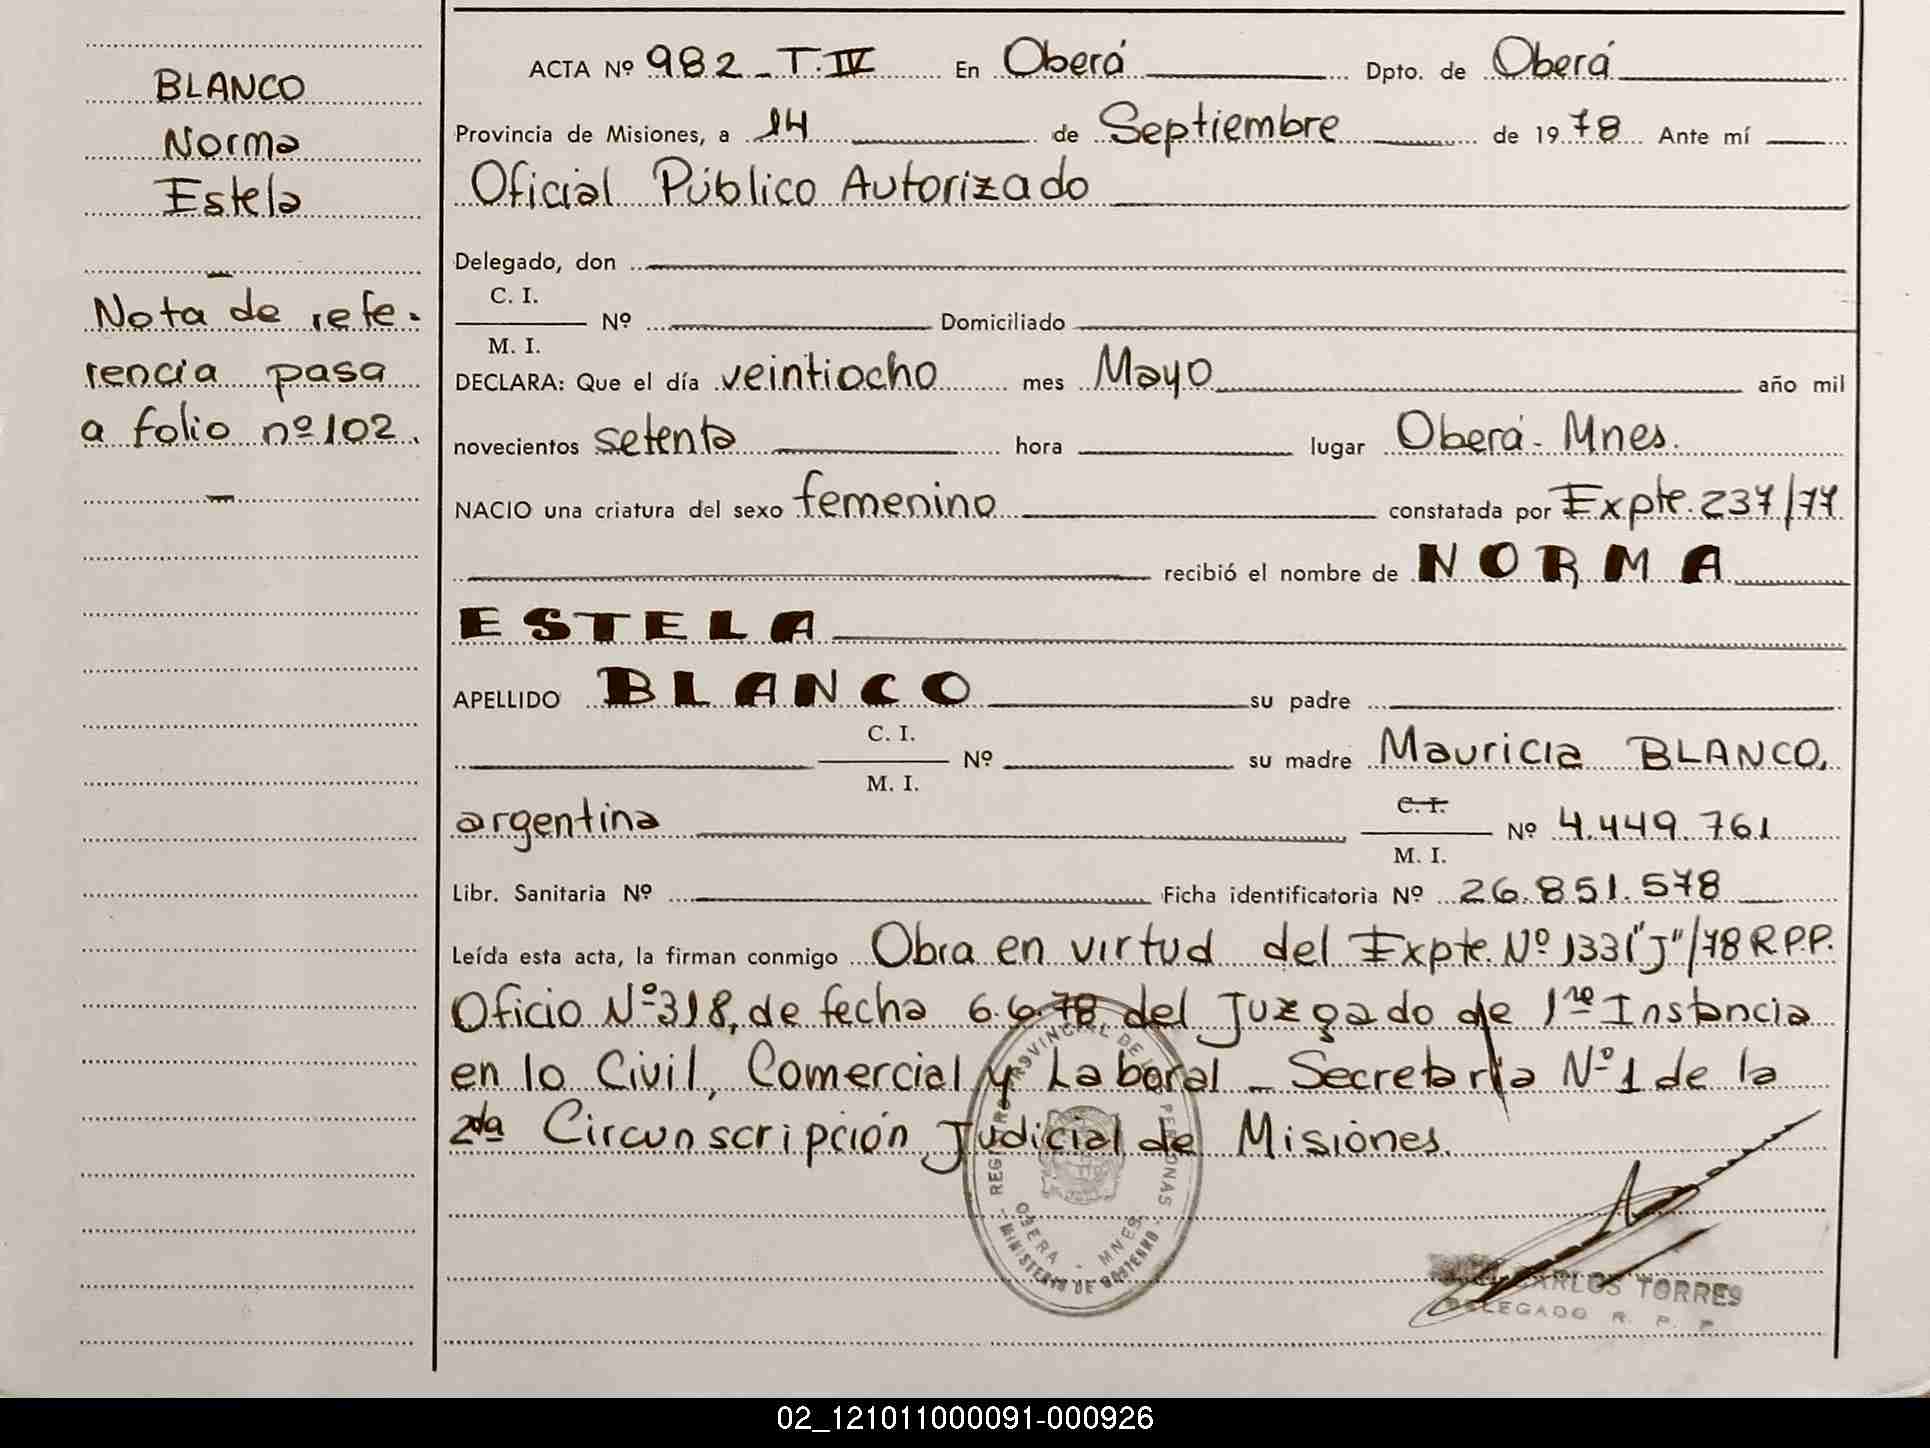 BLANCO
Norma
Estela
Nota de refe-
rencia pasa
a folio nº 102.
ACTA Nº 982 - T. IV En Oberá Dpto. de Oberá
Provincia de Misiones, a 14 de Septiembre de 1978 Ante mí
Oficial Público Autorizado
Delegado, don
C. I.
Nº Domiciliado
M. I.
DECLARA: Que el día veintiocho mes Mayo año mil
novecientos setenta hora lugar Oberá - Mnes.
NACIO una criatura del sexo femenino constatada por Expte. 237/77
recibió el nombre de NORMA
ESTELA
APELLIDO BLANCO su padre
C. I.
Nº su madre Mauricia BLANCO,
M. I.
argentina C. I. Nº 4.449.761
M. I.
Libr. Sanitaria Nº Ficha identificatoria Nº 26.851.578
Leída esta acta, la firman conmigo Obra en virtud del Expte. Nº 1331"J"/78 R.P.P.
Oficio Nº 318, de fecha 6.6.78 del Juzgado de 1ra Instancia
en lo Civil, Comercial y Laboral - Secretaria Nº 1 de la
2da Circunscripción Judicial de Misiones.
REGISTRO PROVINCIAL DE LAS PERSONAS
OBERA - MNES.
MINISTERIO DE GOBIERNO
CARLOS TORRES
DELEGADO R. P. P.
02_121011000091-000926